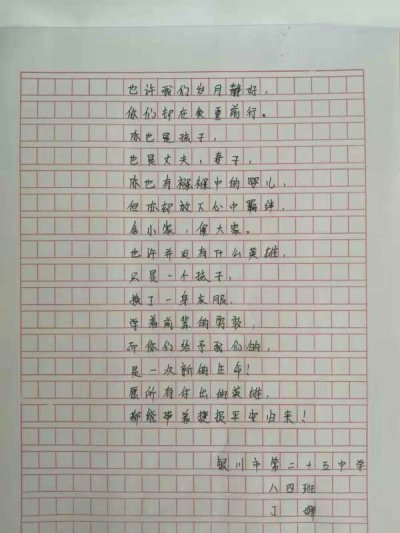 也许我们岁月静好，
你们却在负重前行。
你也是孩子，
也是丈夫，妻子，
你也有襁褓中的婴儿，
但你却放下心中羁绊，
舍小家，保大家。
也许并没有什么英雄，
只是一个孩子，
换了一身衣服，
学着前辈的勇敢，
而你们给予我们的，
是一次新的生命！
愿所有付出的英雄，
都能带着捷报平安归来！
银川市第二十五中学
八四班
丁 娜